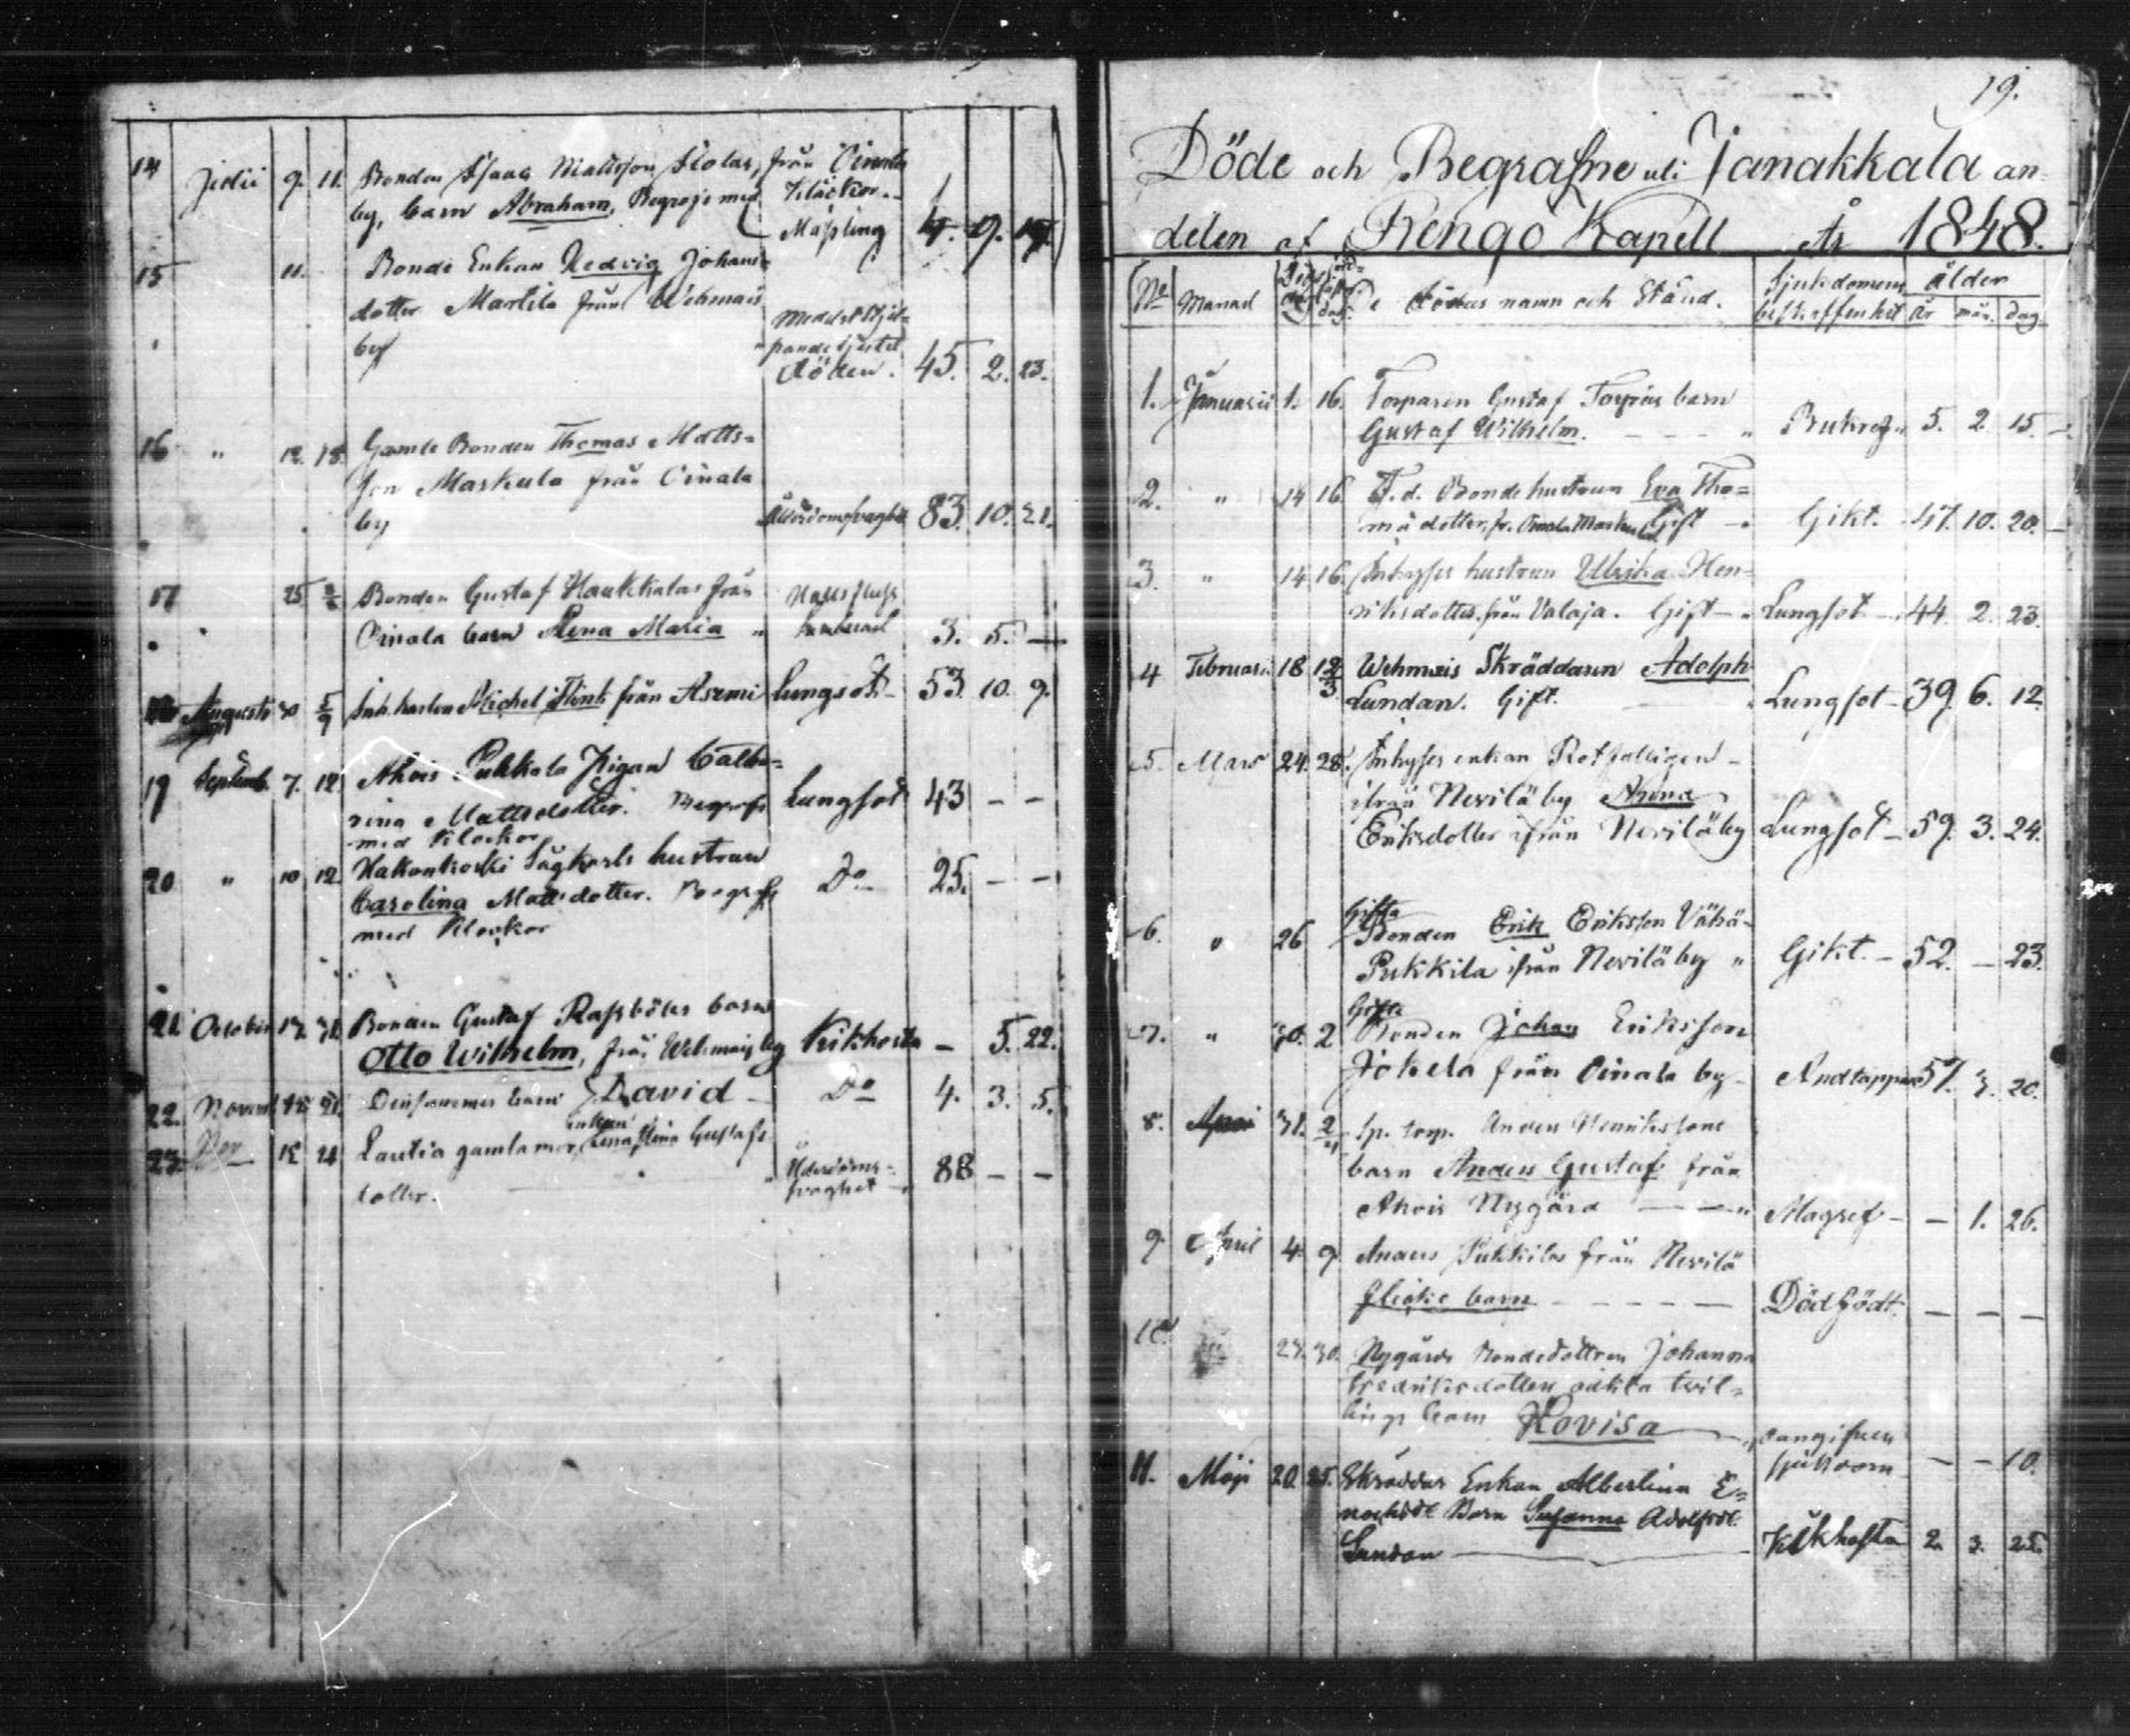 14 Julii 9. 11. Bonden Isaac Mattsson Iivolas, från Oinala
by, barn Abraham, Begrofs med Kläckor.
Mäßling 4. 9. 17.
15 11. Bonde Enkan Hedvig Johans-
dotter Martila från Wehmais
by
döden. 45. 2. 23.
16 " 12. 18. Gamle Bonden Thomas Matts-
son Markula från Oinala
by Ålderdomsvaghet 83. 10. 21.
17 25 Bonden Gustaf Haukkalas från
Oinala barn Lena Maria " 3. 5. —
18 Augusti 30 5/9 Inh. karlen Michel Flink från Asemi Lungsot. 53 10. 9.
19 Septemb. 7. 12. Ahois Pukkala Pigan Catha-
rina Mattsdotter. Begrofs Lungsot 43 – –
med Klockor
20 " 10 12. Hakonkoski Sågkarls hustrun
Carolina Mattsdotter. Begrofs Do 25. – –
med Klockor
21. October 17. 31. Bonden Gustaf Raßböles barn
Otto Wilhelm, från Wehmais by Kikhosta – 5. 22.
22. Novemb 15 21. Densammes barn David – Do 4. 3. 5.
enkan
23. Do 12 14 Lautia gamla mor, Lena Stina Gustafs-
dotter. Ålderdoms-
svaghet 88 – –
19.
Döde och Begrafne uti Janakkala an-
delen af Rengo Kapell År 1848.
No Månad De dödas namn och Stånd. Sjukdomens ålder
beskaffenhet år mån. dag.
1. Januarii 1. 16. Torparen Gustaf barn
Gustaf Wilhelm. – – – " Bukref " 5. 2. 15. –
2. " 14 16 F.d. Bondehustrun Eva Tho-
mædotter, fr. Oinala Gift – Gikt. 47. 10. 20. –
3. " 14 16. Inhyses hustrun Ulrika Hen-
riksdotter, från Valaja. Gift – " Lungsot – 44. 2. 23.
4 Februari 18 12/3 Wehmais Skräddaren Adolph
Lundan. Gift. Lungsot – 39. 6. 12.
5. Mars 24. 28. Inhyses enkan Rotfattigen –
ifrån Nevilä by Anna
Eriksdotter ifrån Nevilä by Lungsot – 59. 3. 24.
Gifta
6. " 26 Bonden Erik Eriksson Vähä-
Pukkila ifrån Nevilä by " Gikt. – 52. – 23.
Gifta
7. " 30. 2 Bonden Johan Eriksson
Jokela från Oinala by – Andtäppa 57. 3. 20.
8. 31. 2/4 Sp. torp. Anders Henrikssons
barn Anders Gustaf från
Ahois Nygård — — " Magref – – 1. 26.
9. April 4. 9 Anders Pukkilas från Nevilä
flicke barn – – – – – Dödfödt. – – –
10. 27. 30. Nygårds Bondedottren Johanna
Fredriksdotters oäkta tvil-
lings barn Lovisa — oangifven
sjukdom – – 10.
11. Maji 20. 25. Skräddar Enkan Albertina E-
nochsdr Barn Susanna Adolfsdr
Lundan — Kikhosta 2. 3. 25.